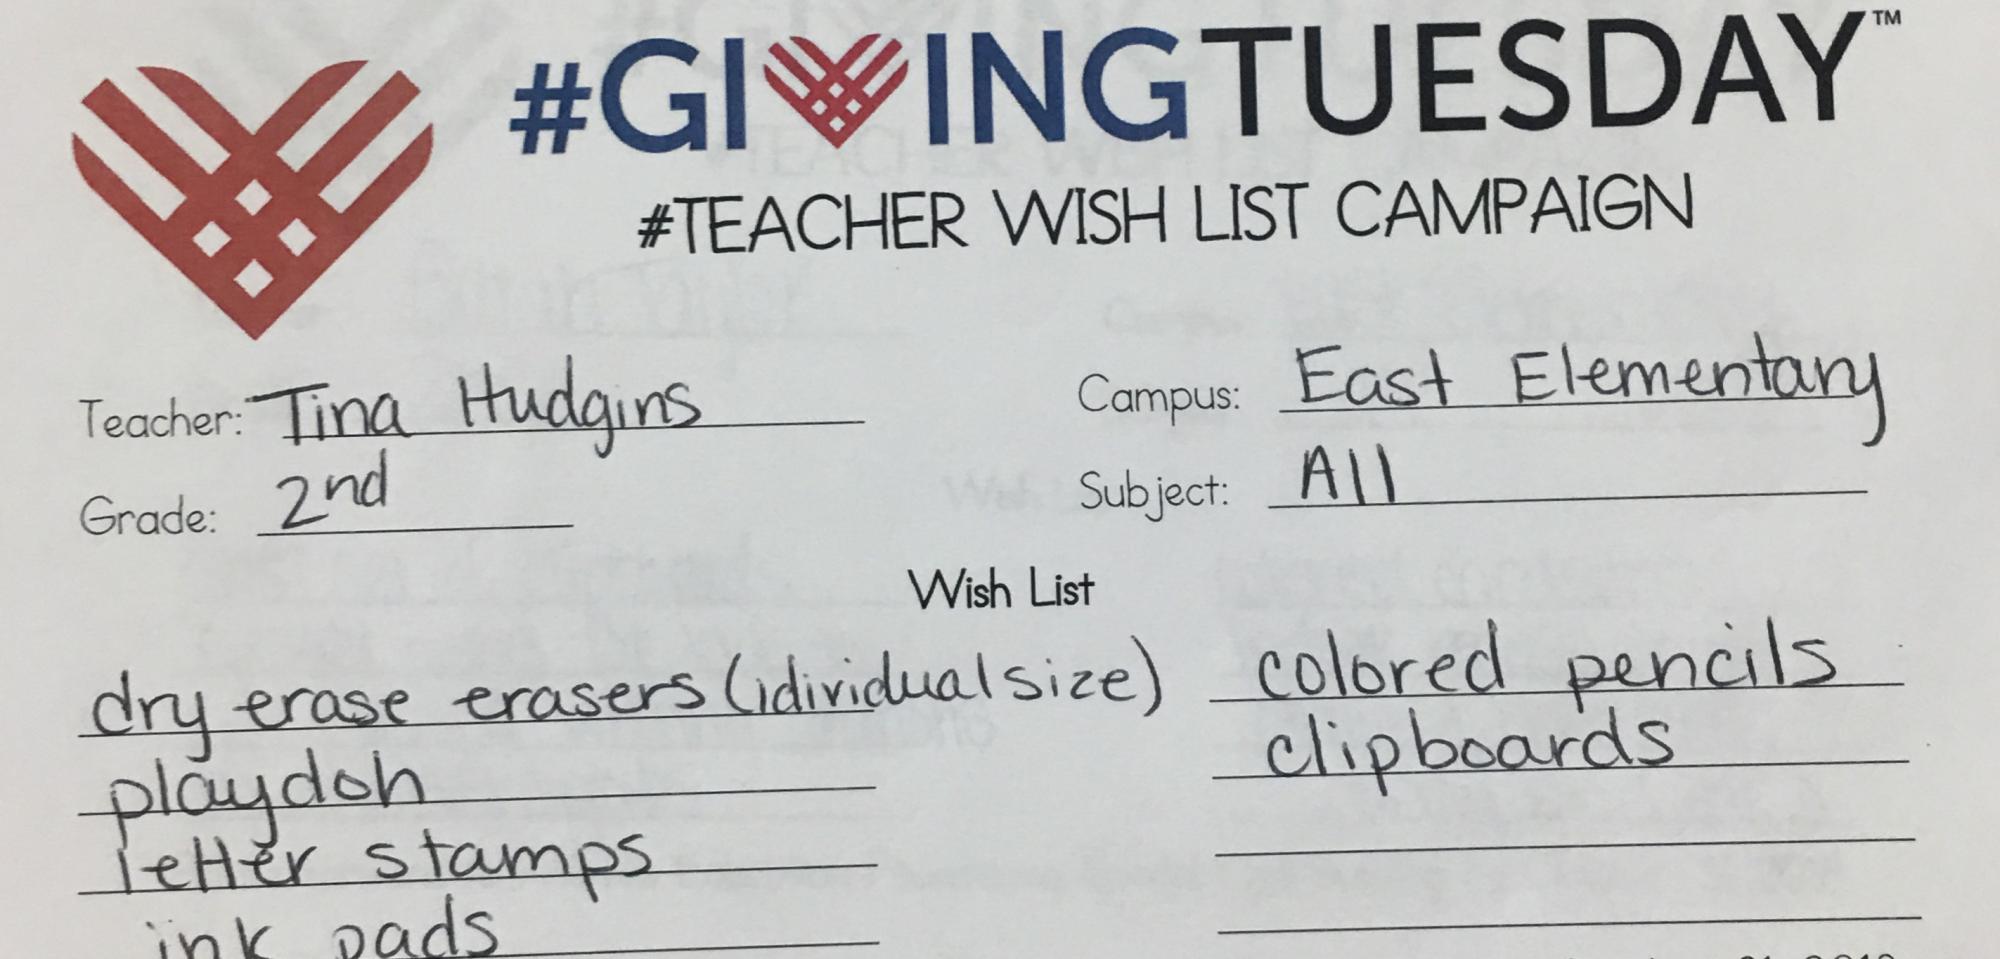 #GIVINGTUESDAY™
#TEACHER WISH LIST CAMPAIGN
Teacher: Tina Hudgins
Campus: East Elementary
Grade: 2nd
Subject: All
Wish List
dry erase erasers (idividual size)
colored pencils
playdoh
clipboards
letter stamps
ink pads